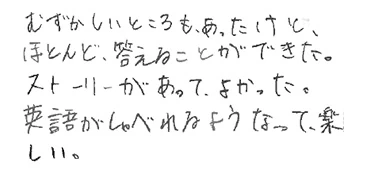 むずかしいところも、あったけど、
ほとんど、答えることができた。
ストーリーがあって、よかった。
英語がしゃべれるようなって、楽
しい。